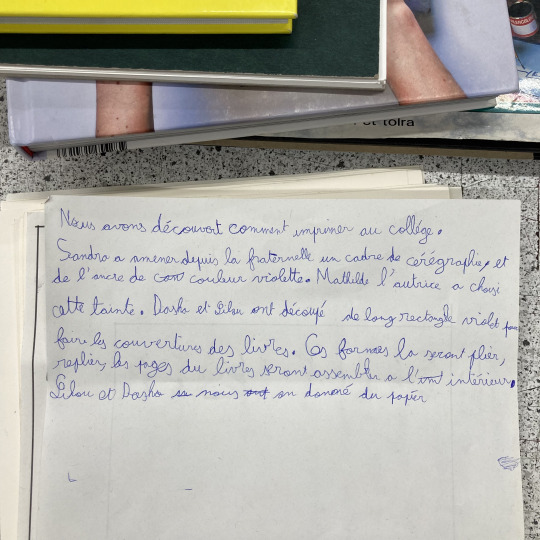 et tolra
Nous avons découvoit comment imprimer au collége.
Sandra a amener depuis la fraternelle un cadre de cérégraphie, et
de l'ancre de couleur violette. Mathilde l'autrice a choisi
cette tainte. Dasha et Lilou ont découpé de long rectangle violet pour
faire les couvertures des livres. Ces formes la seront plier,
replier, les pages du livres seront assembler a l'intérieur.
Lilou et Dasha nous on donné du papier